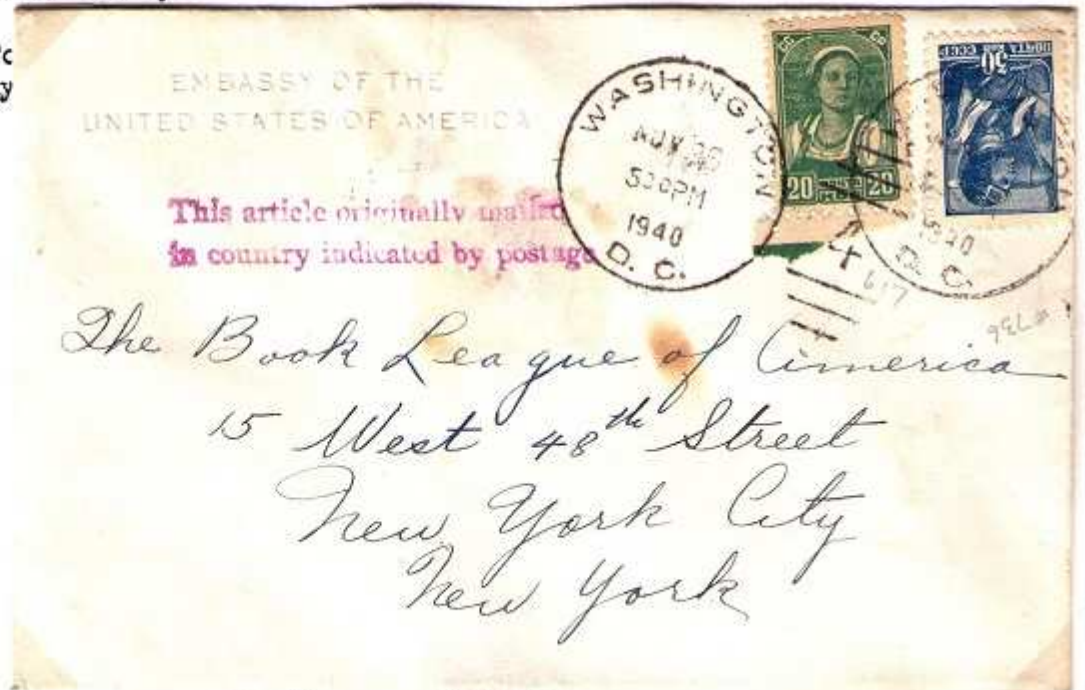 EMBASSY OF THE
UNITED STATES OF AMERICA
This article originally mailed
in country indicated by postage
WASHINGTON
NOV
5 30 PM
1940
D. C.
20 20
30
ПОЧТА СССР
1940
D. C.
4
617
#736
The Book League of America
15 West 48th Street
New York City
New York